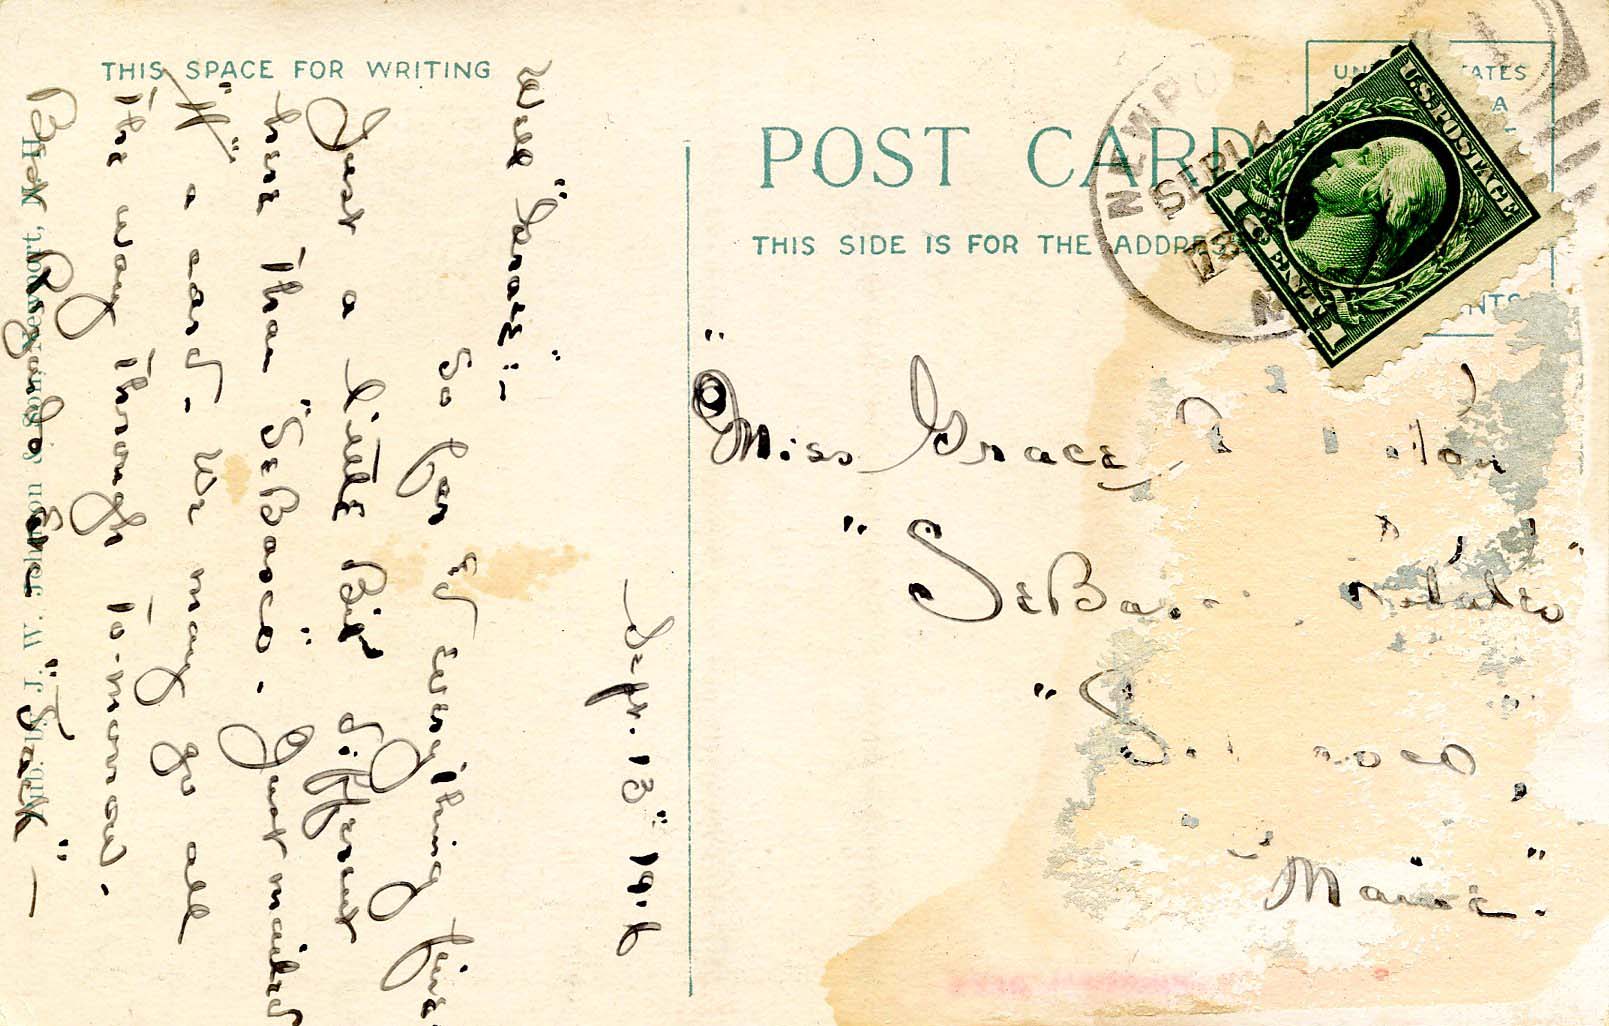 THIS SPACE FOR WRITING
Sept. 13" 1916
Well "Grace":-
So far Ev'erything fine.
Just a little Bit different
here Than "SEBasco". Just mailed
"H" a card. We may go all
The way Through To-morrow.
Best Regards
"Jack" —
Pub. by J. W. Johnson & Son, Newport, N.H.
POST CARD
THIS SIDE IS FOR THE ADDRESS
NEWPORT
SEP
N
U.S. POSTAGE
1 CENT 1
"Miss Grace
"SEBas
Maine.